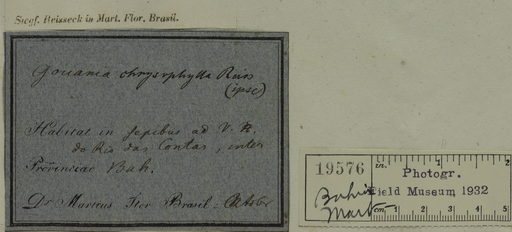 Siegf. Reisseck in Mart. Flor. Brasil.
Gouania chrysophylla Reiss
(ipse)
Habitat in sepibus ad V. R.
do Rio das Contas, inter
Provinciae Bah.
Dr Martius Iter Brasil. Octobr
19576
Photogr.
Field Museum 1932
Bahia
Mart
in. 1 2
cm. 1 2 3 4 5